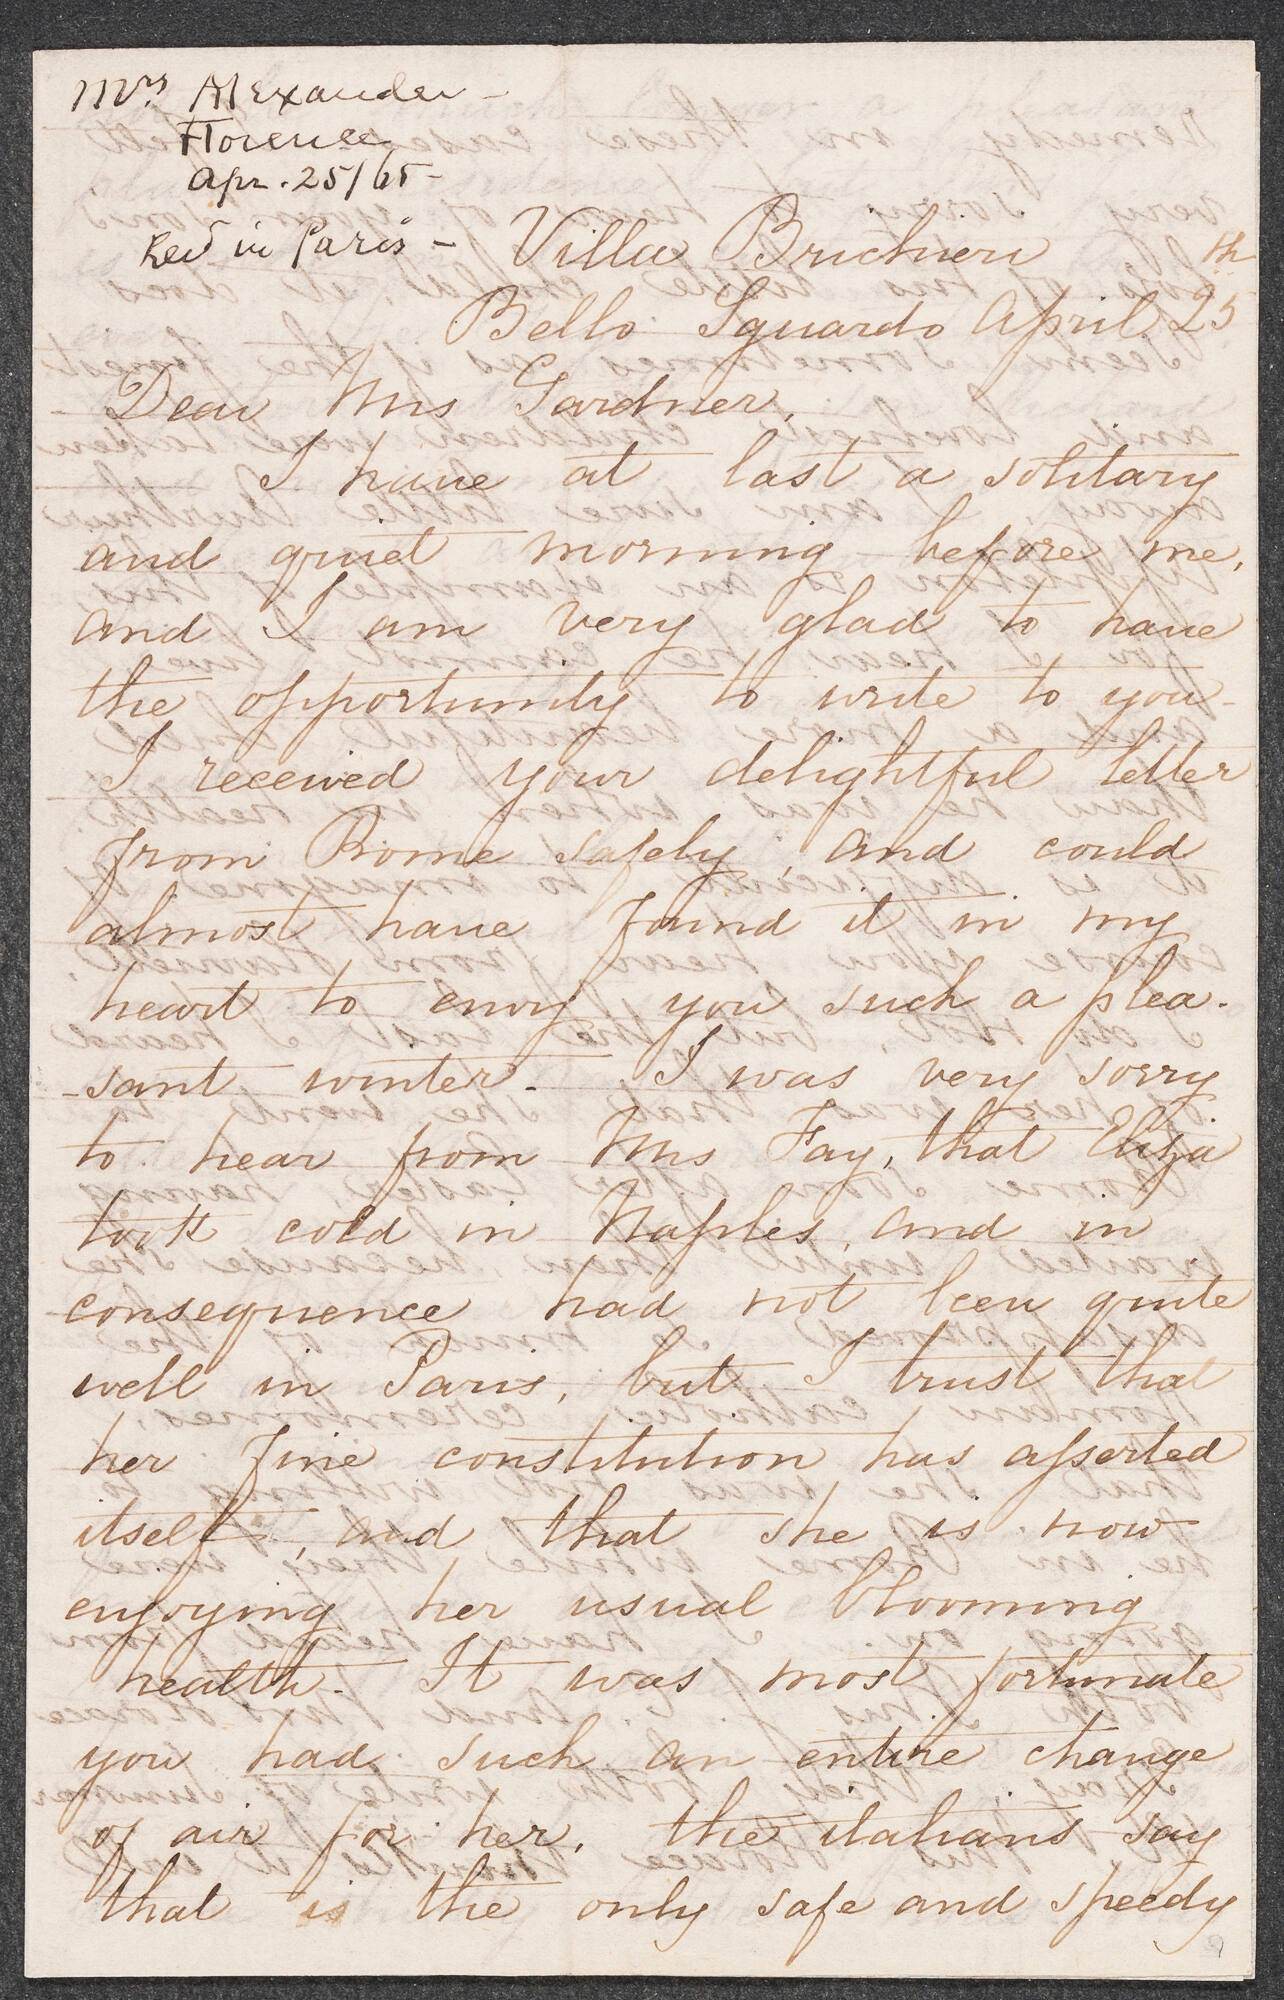 Mrs Alexander -
Florence
Apr. 25/65 -
Recd in Paris -
Villa Brichieri
Bello Sguardo April 25th
Dear Mrs Gardner,
I have at last a solitary
and quiet morning before me,
and I am very glad to have
the opportunity to write to you -
I received your delightful letter
from Rome safely, and could
almost have found it in my
heart to envy you such a plea-
-sant winter - I was very sorry
to hear from Mrs Fay, that Eliza
took cold in Naples, and in
consequence had not been quite
well in Paris, but I trust that
her fine constitution has asserted
itself, and that she is now
enjoying her usual blooming
health - It was most fortunate
you had such an entire change
of air for her, the italians say
that is the only safe and speedy